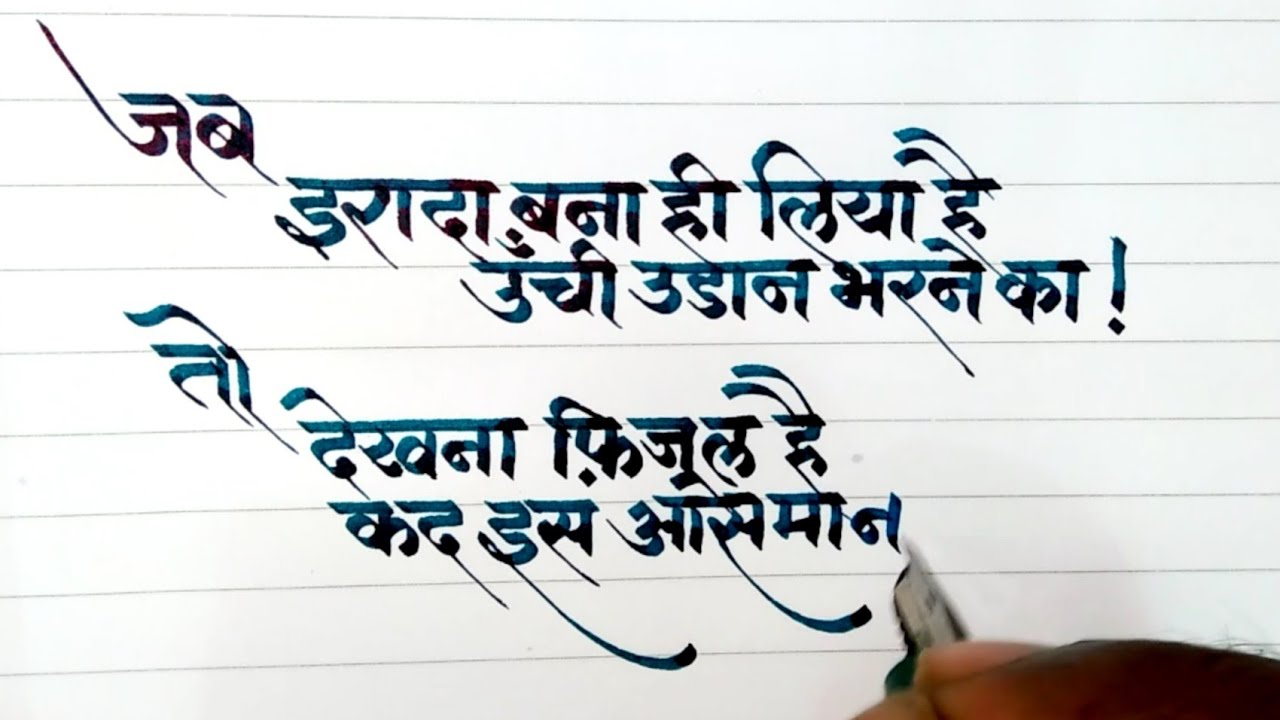 जब
इरादा बना ही लिया है
उँची उडान भरने का !
तो
देखना फ़िजूल है
कद इस आसमान